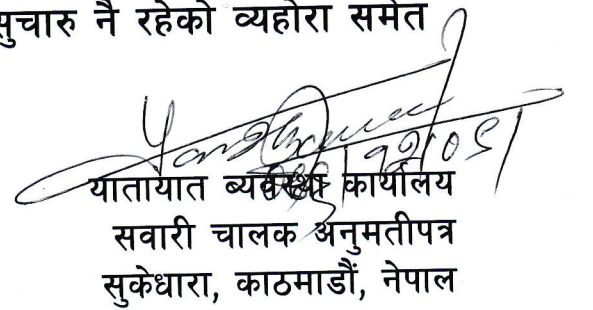 सुचारु नै रहेको व्यहोरा समेत
यातायात ब्यवस्था कार्यालय
सवारी चालक अनुमतीपत्र
सुकेधारा, काठमाडौं, नेपाल